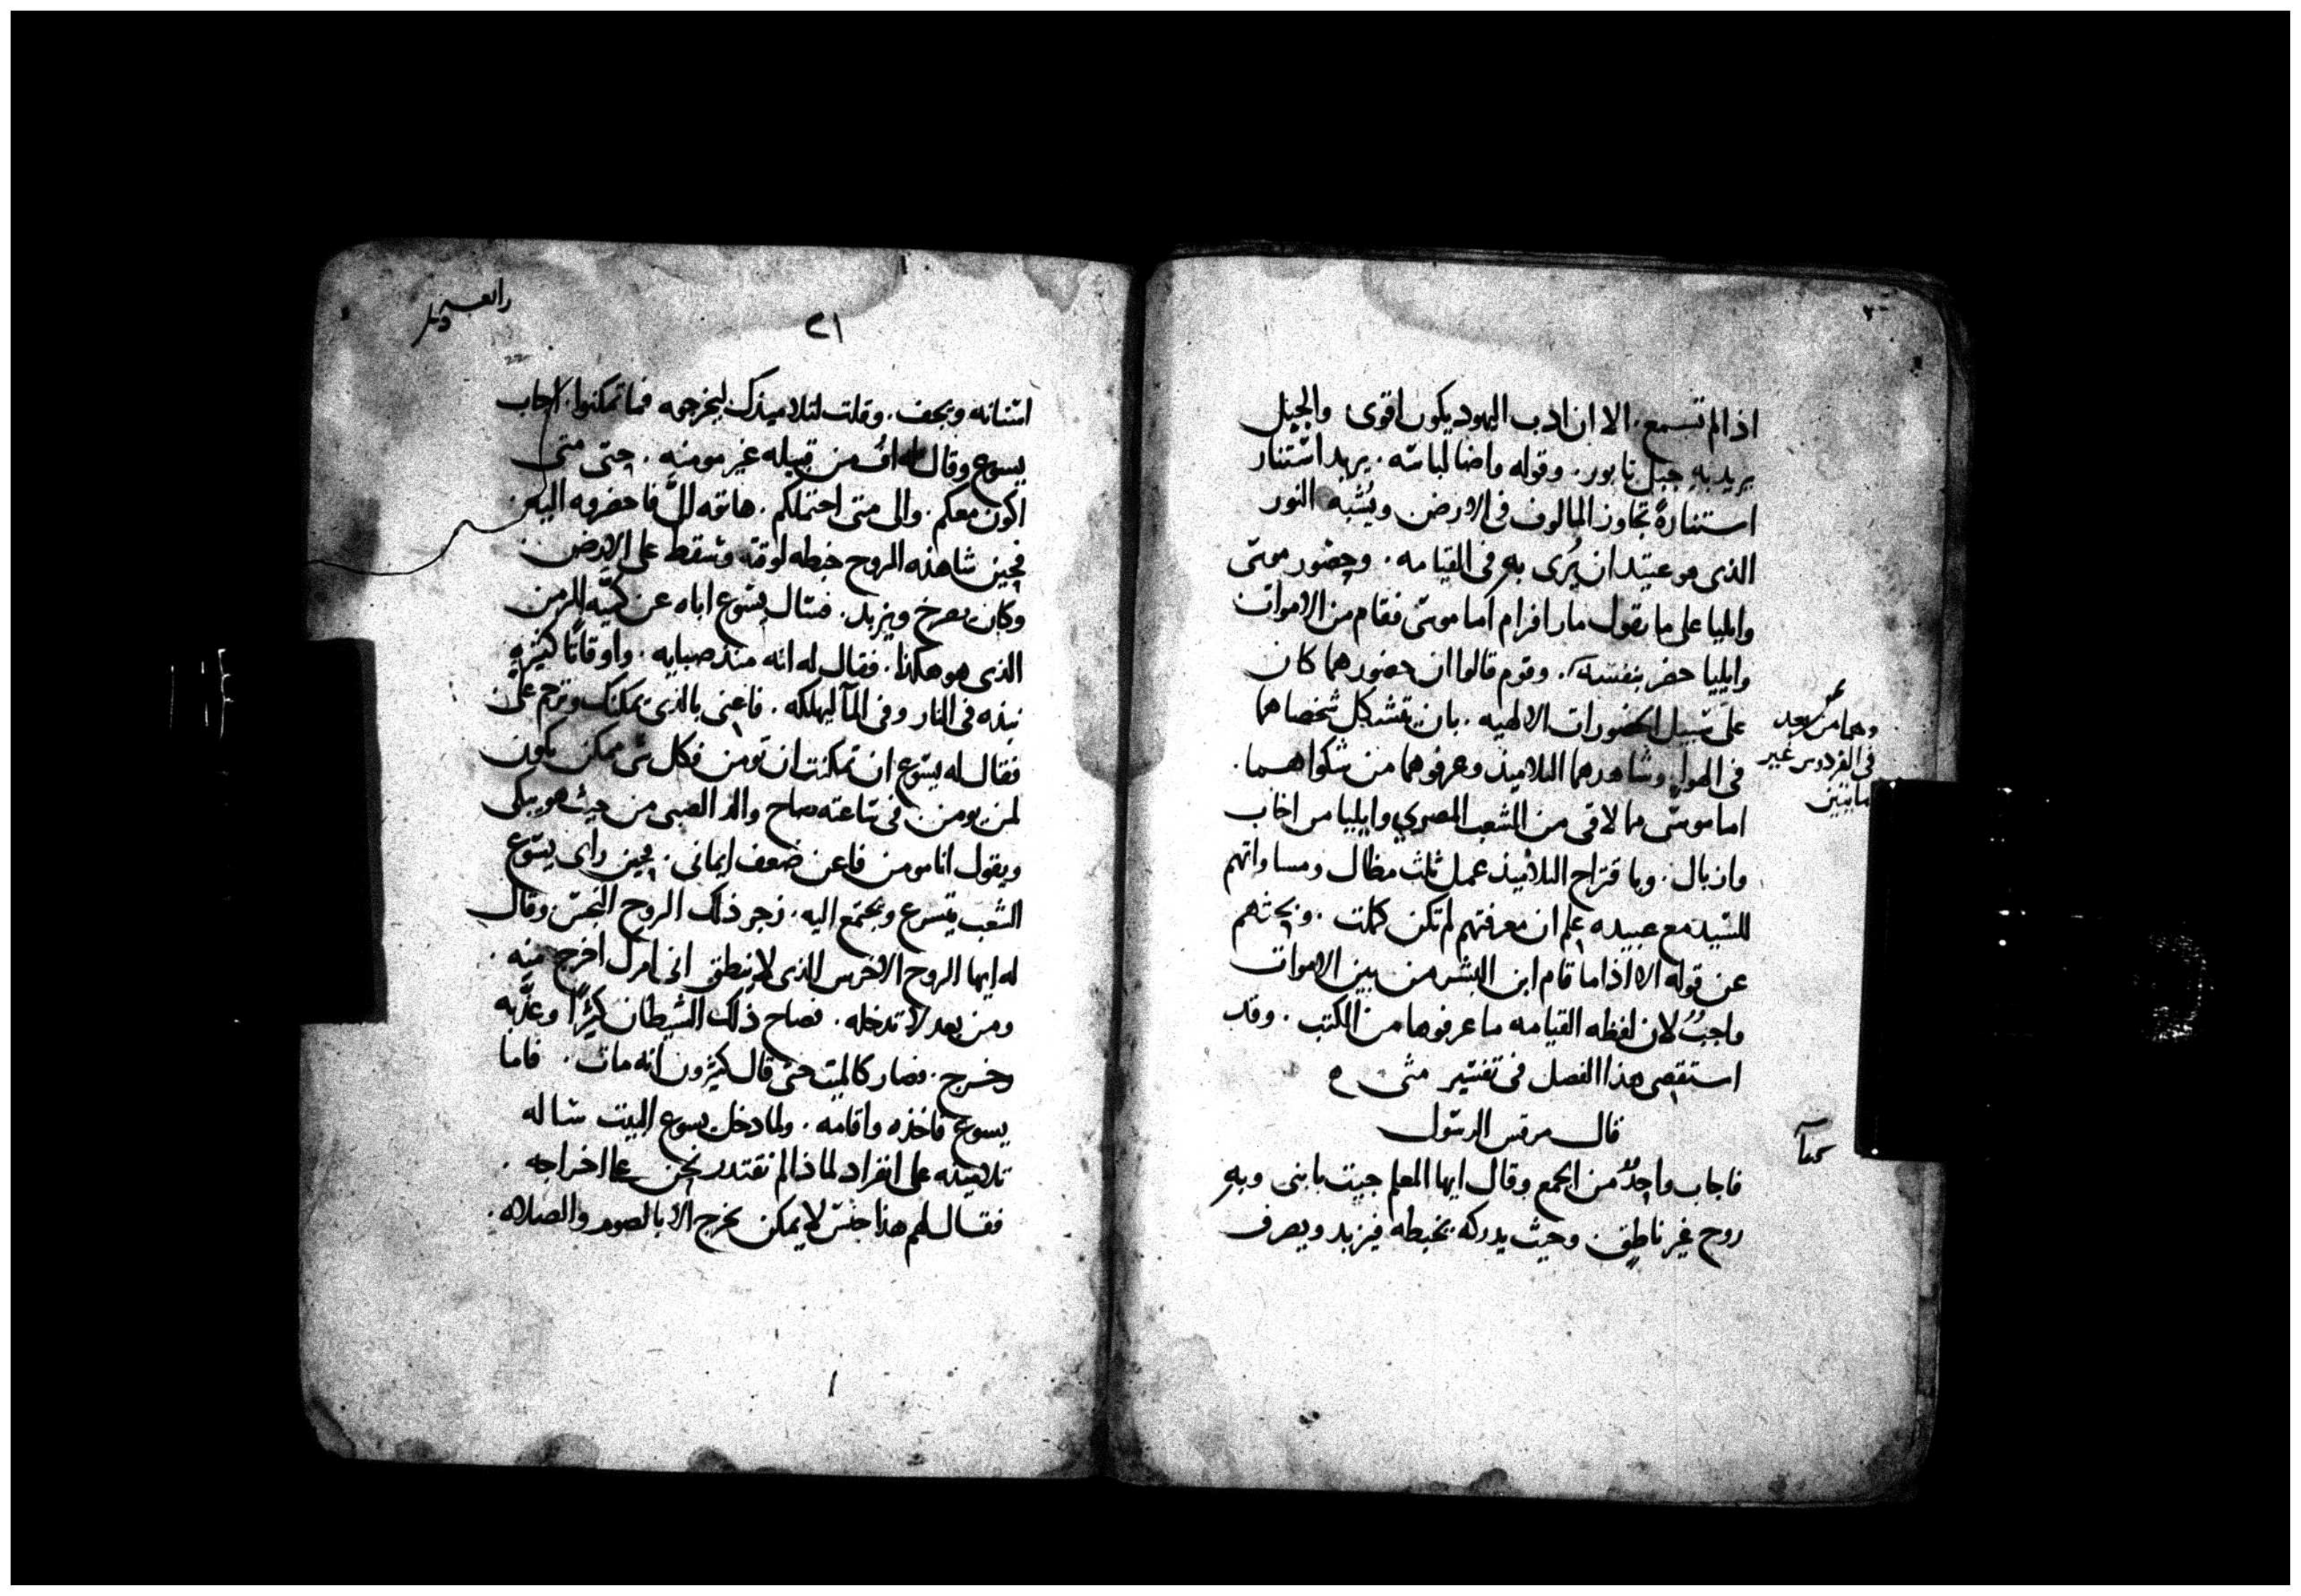 اذا لم تسمع. الا ان ادب اليهود يكون اقوى والجبل
يريد به جبل تابور. وقوله واضا لباسه. يريد استنار
استنارةً تجاوز المالوف في الارض ويُشبه النور
الذى هو عتيد ان يُرى به فى القيامه. وحضور موسى
وايليا على ما يقول مار افرام اما موسى فقام من الاموات
وايليا حضر بنفسه. وقوم قالوا ان حضورهما كان
على سبيل الحضورات الالهيه. بان تشكل شخصاهما
فى الهوا وشاهدهما التلاميذ وعرفوهما من شكواهما.
اما موسى مما لاقى من الشعب المصري وايليا من اخاب
وازبال. وباقتراح التلاميذ عمل ثلث مظال ومساواتهم
للسيد مع عبيده علم ان معرفتهم لم تكن كملت. وبحثهم
عن قوله الا اذا ما قام ابن البشر من بين الاموات
واجبُ لان لفظه القيامه ما عرفوها من الكتب. وقد
استقصى هذا الفصل فى تفسير متى ه
قال مرقس الرسول
فاجاب واحدٌ من الجمع وقال ايها المعلم جيت بابنى وبه
روح غير ناطق. وحيث يدركه يخبطه فيزبد ويصرف
وهما من بعد
فى الفردوس غير
مايتين
٢١
اسنانه ويجف. وقلت لتلاميذك ليخرجوه فما تمكنوا. اجاب
يسوع وقال له اف من قبيله غير مومنه. حتى متى
اكون معكم. والى متى احتملكم. هاته الىَّ فاحضروه اليه.
فحين شاهده الروح خبطه لوقته وسقط على الارض
وكان يصرخ ويزبد. فسال يسوع اباه عن كميّه الزمن
الذى هو هكذا. فقال له انه منذ صبايه. واوقاتًا كثيره
نبذه فى النار وفى المآ ليهلكه. فاعنى بالذى يمكنك وترحم علىّ
فقال له يسوع ان تمكنت ان تومن فكل شى ممكن يكون
لمن يومن فى ساعته صاح والد الصبى من حيث هو يبكى
ويقول انا مومن فاعن ضعف ايمانى. فحين راى يسوع
الشعب يتسرع ويجتمع اليه. زجر ذلك الروح النجس وقال
له ايها الروح الاخرس الذى لا ينطق انى امرك اخرج منه.
ومن بعد لا تدخله. فصاح ذلك الشيطان كثيرًا وعذّبه
وخرج. فصار كالميت حتى قال كثيرون انه مات. فاما
يسوع فاخذه واقامه. ولما دخل يسوع البيت ساله
تلاميذه على انفراد لماذا لم نقتدر نحن على اخراجه.
فقال لهم هذا جنس لا يمكن يخرج الا بالصوم والصلاه.